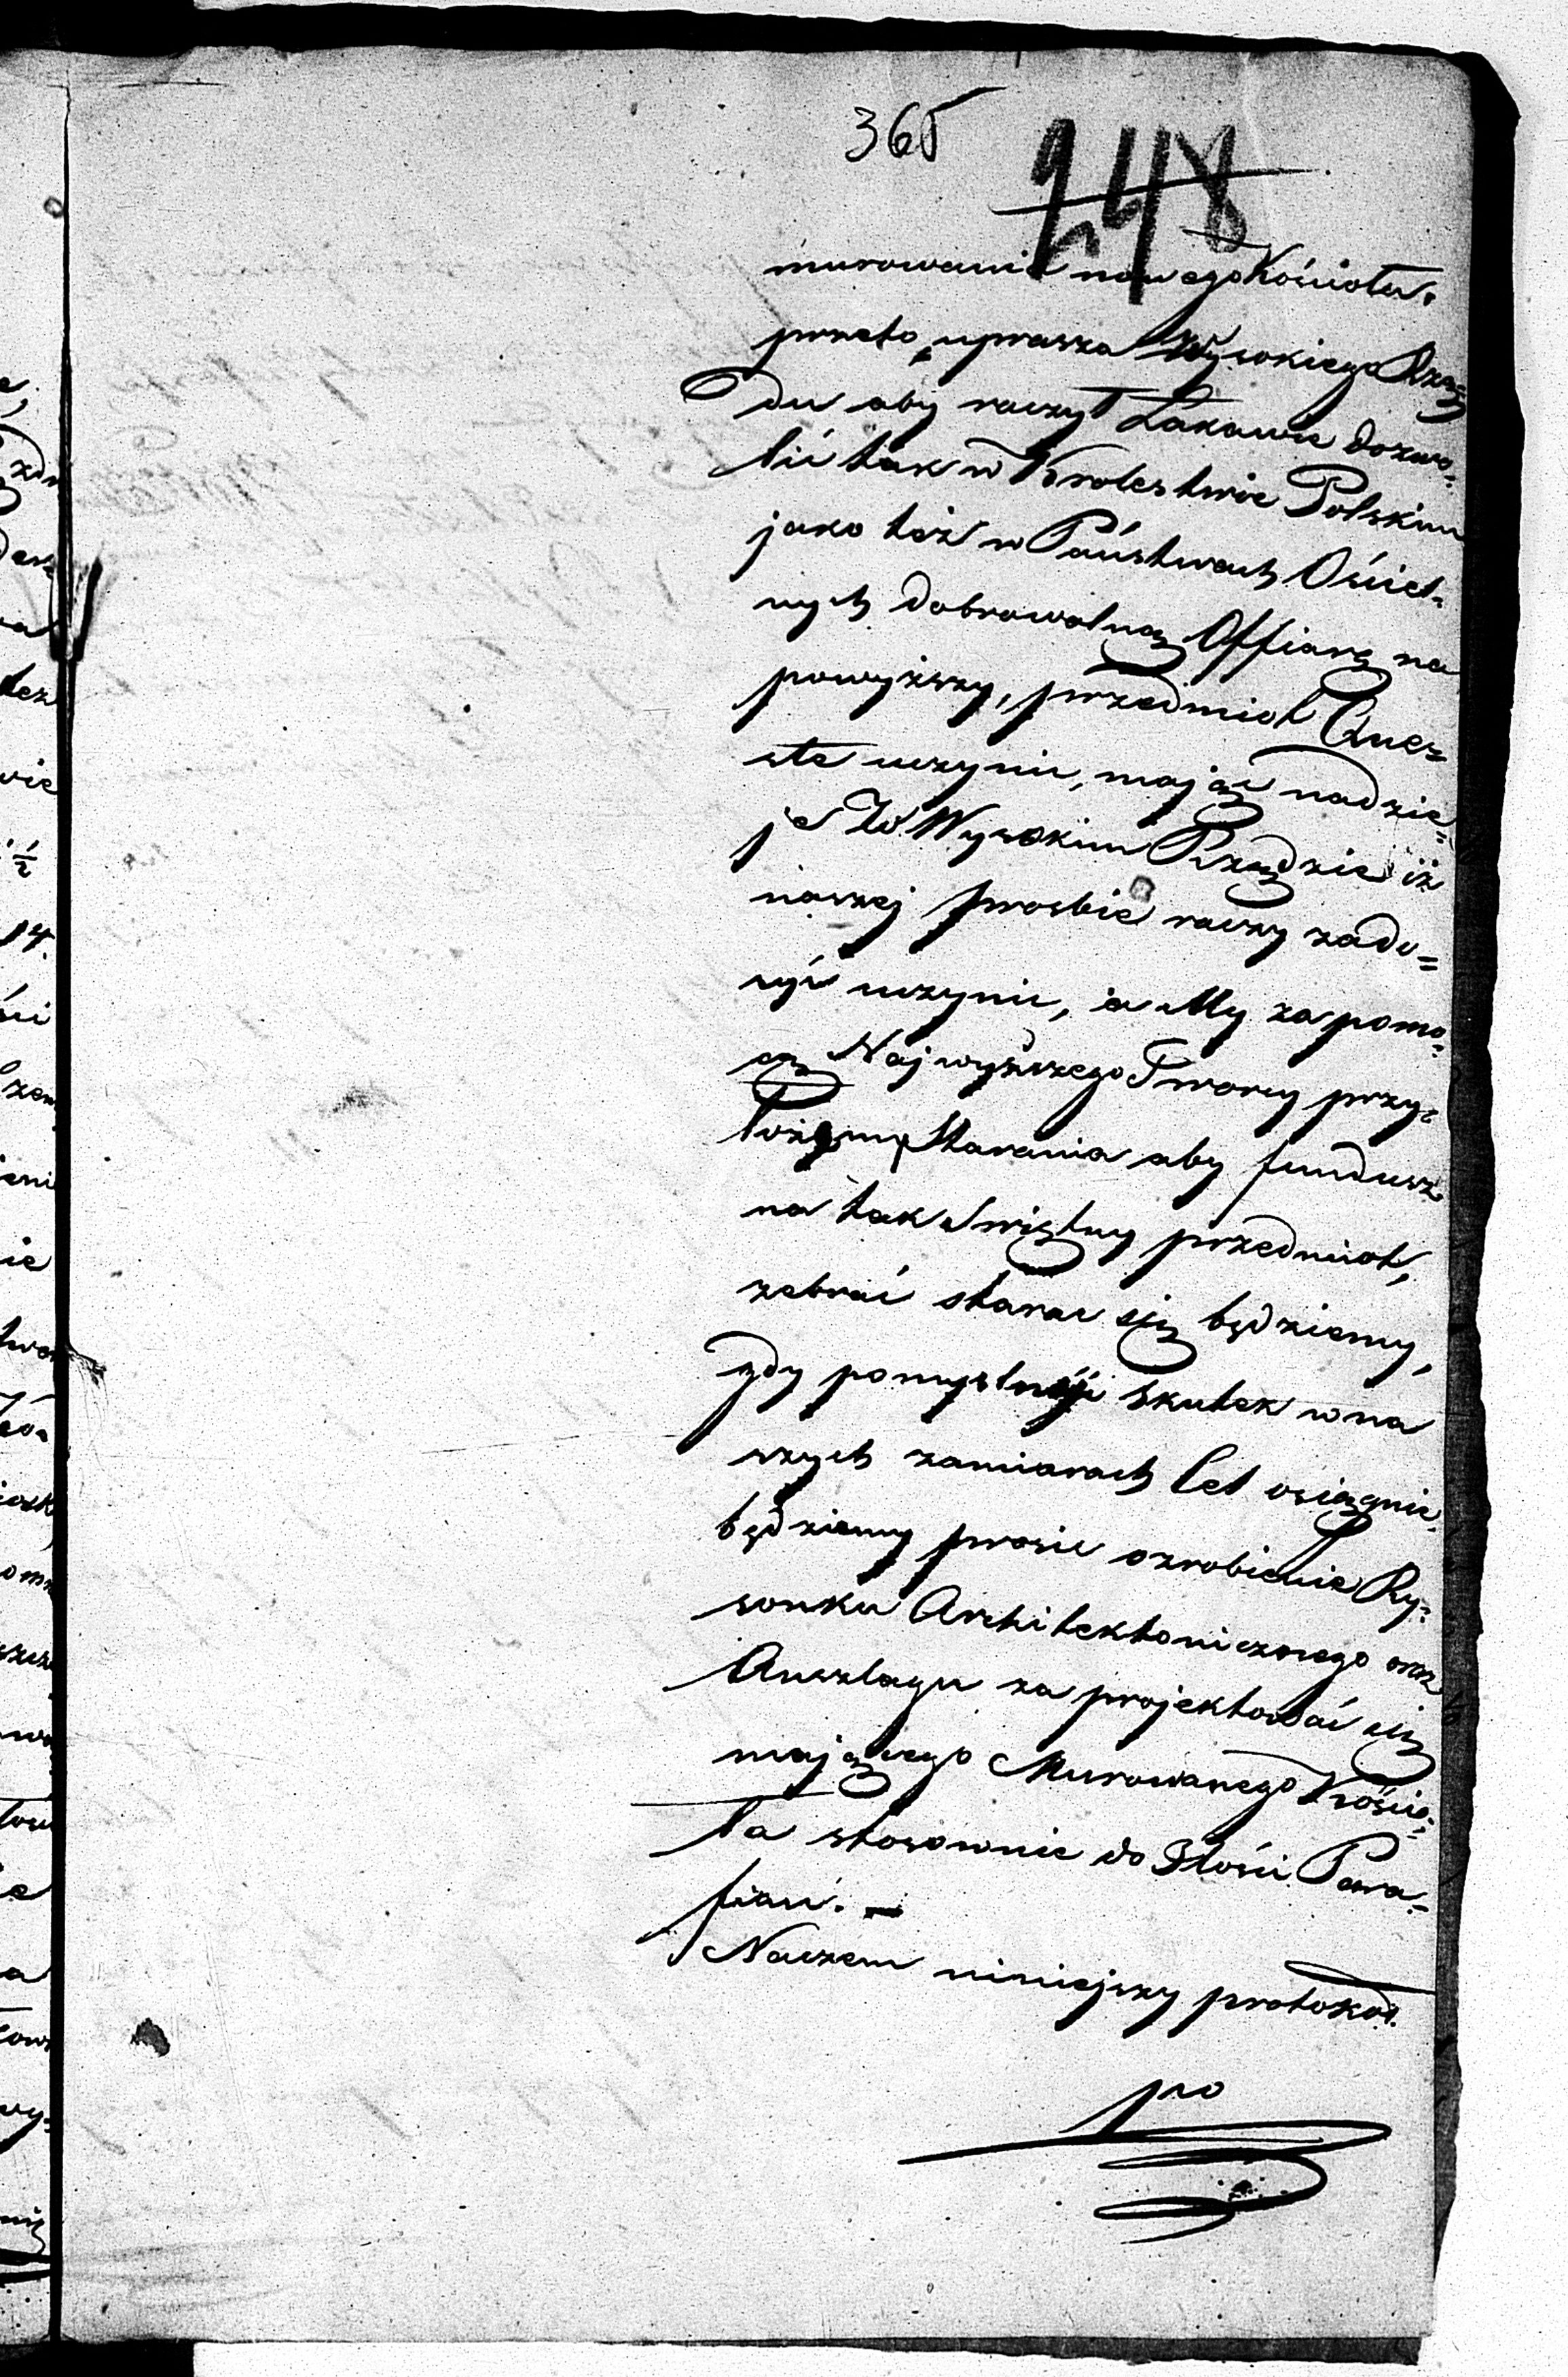 365
248
murowania nowego Kościoła.
przeto, uprasza Wysokiego Rzą-
du aby raczył Łakawie dozwo-
lić tak w Krolestwie Polskim
jako też w Państwach Ościel-
nych dobrowolną Offiarę na
powyższy, przedmiot Ques-
ste uczynic, mając nadzie-
je W Wysokim Rządzie iż
naszej prosbie raczy zado-
syć uczynic, a My za pomo-
cą Najwyższego Tworcy przy-
łożemy Starania aby fundusz
na tak Swiętny przedmiot,
zebrać starac się będziemy,
gdy pomyslny skutek w na
szych zamiarach Cel osiągnie
będziemy prosic o zrobienie Ry-
sonku Architektonicznego oraz
Anszlagu za projektować się
mającego Murowanego Kościo-
ła stosownie do Ilosci Para-
fian. —
Naczem niniejszy protokoł.
po